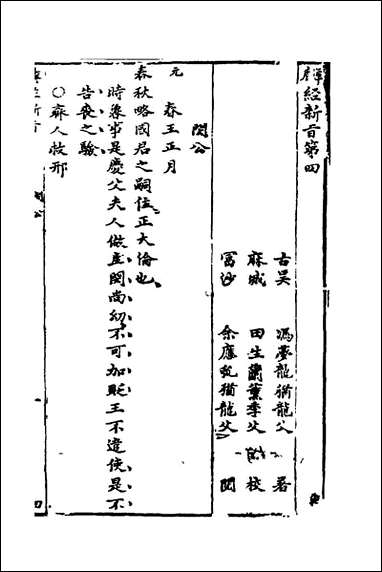 麟經新旨第四
古吳 馮夢龍猶龍父 著
麻城 田生蘭薰季父 校
富沙 余應虬猶龍父 閱
閔公
元 春王正月
春秋略國君之嗣位正大倫也
時繁事是慶父夫人做主閔尚幼不可加貶王不遣使是不
告喪之驗
○齊人救邢
閔公